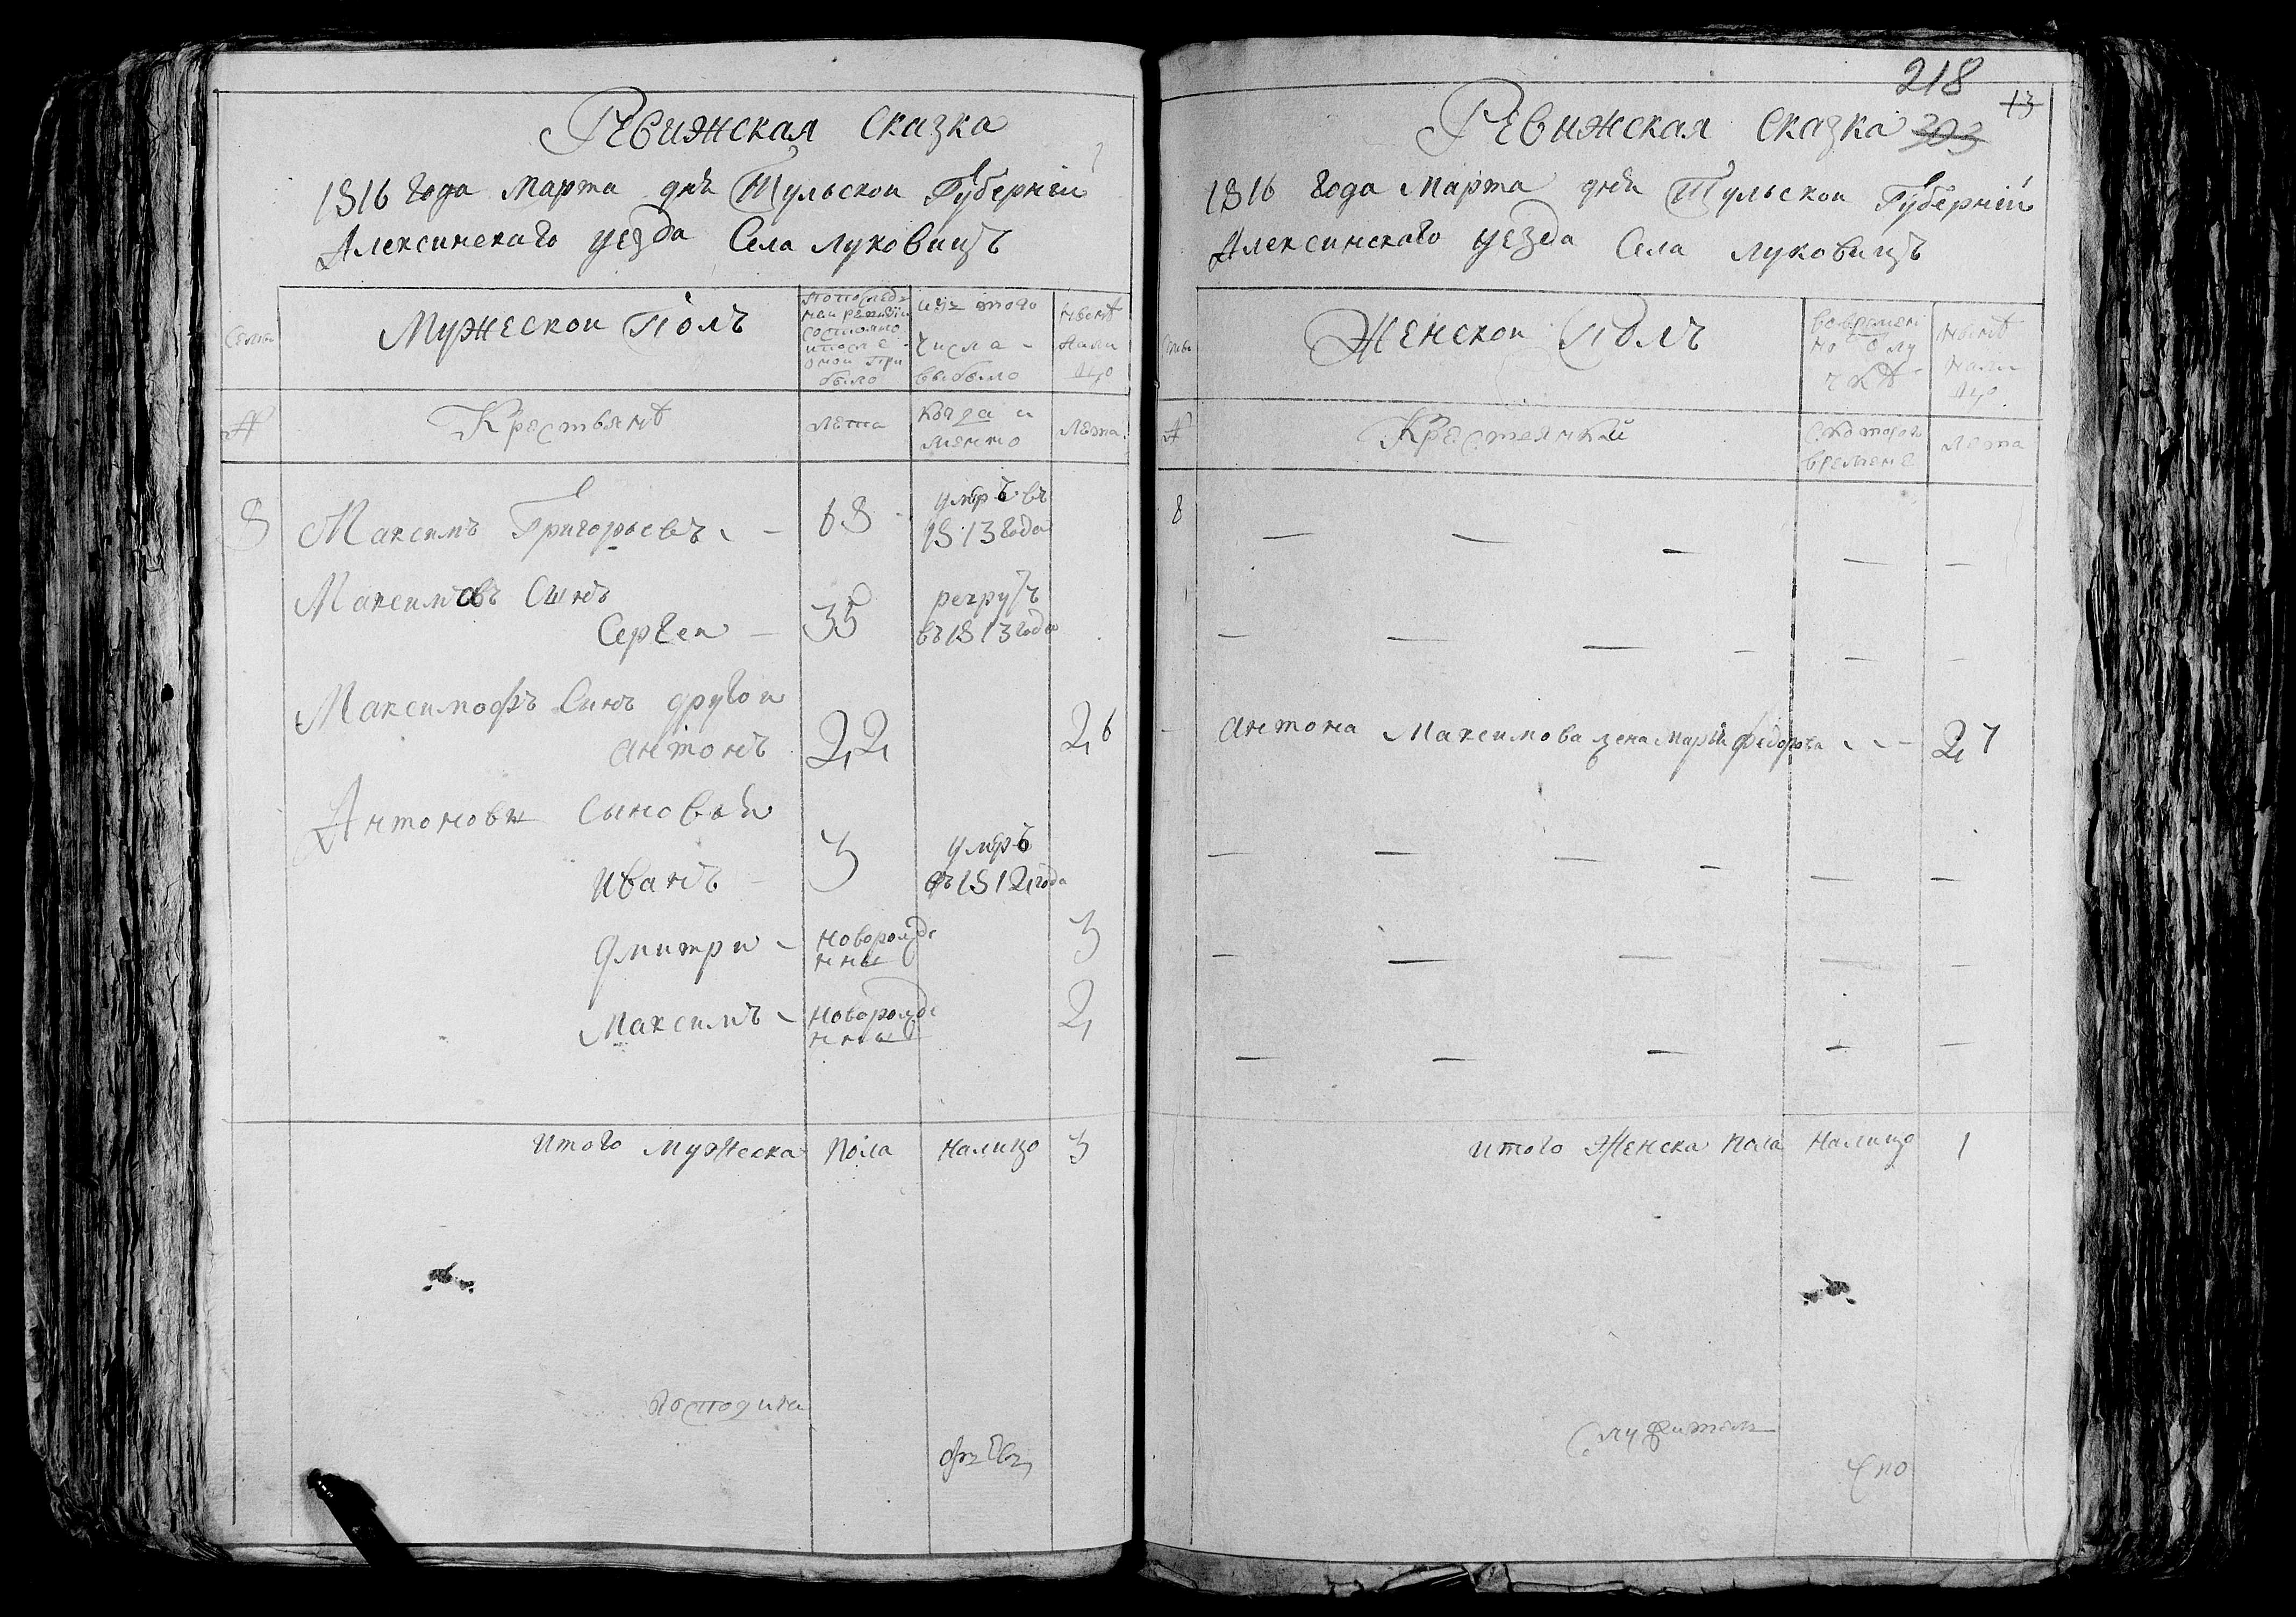 Ревижская Сказка
1816 года Марта днѣ Тульскои Губерніи
Алексинскаго уезда Села луковицъ
Семьи
Мужескои Полъ
Попослед
неи ревизіи
состояло
и после
онои При
было
изъ того
числа
выбыло
ныне
Нали
цо
№
Крестьянѣ
Лета
Когда и
менно
Лета
8 Максимъ Григорьевъ 68 умре въ
1813 года
Максимовъ Сынъ
Сергеи 35 рекрутъ
въ 1813 года
Максимофъ Сынъ другои
антонъ 22 26
Антоновы Сыновьи
Иванъ 3 умре
въ 1812 года
Дмитри новорожде
нны 3
Максимъ новорожде
нны 2
итого мужеска Пола Налицо 3
Господина
218
13
Ревижская Сказка 303
1816 года Марта днѣи Тульскои Губерніи
Алексинскаго уезда Села луковицъ
Женскои Полъ
Во времен
но отлу
чкѣ
ныне
нали
цо
№
Крестеянкаи
С которого
времене
лета
8
антона Максимова жена Марья федорова 27
итого Женска пола Налицо 1